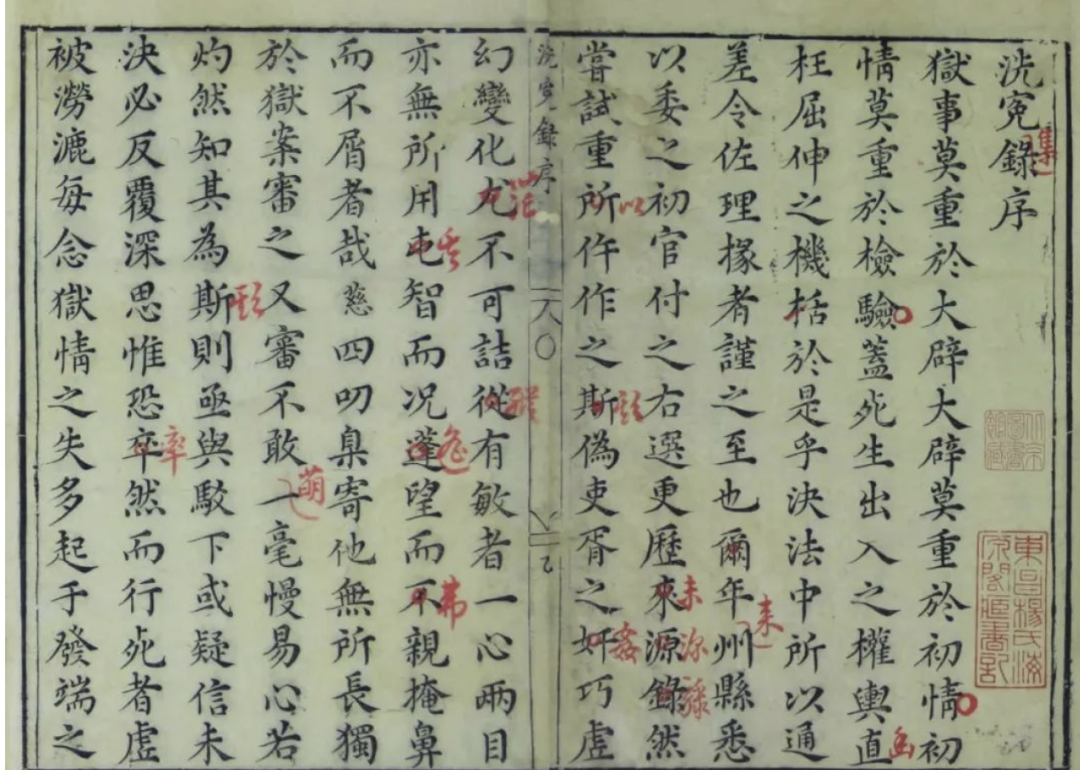 洗寃錄序
集
獄事莫重於大辟大辟莫重於初情初
情莫重於檢驗蓋死生出入之權輿直
幽
枉屈伸之機括於是乎決法中所以通
差令佐理掾者謹之至也爾年州縣悉
来
以委之初官付之右選更歷來源錄然
未
以
嘗試重所仵作之斯偽吏胥之奸巧虛
姦
洗寃錄序
幻變化尤不可詰從有敏者一心兩目
茫
亦無所用屯智而况蓬望而不親掩鼻
弗
而不屑者哉慈四叨臬寄他無所長獨
於獄案審之又審不敢一毫慢易心若
萌
灼然知其為斯則亟與駁下或疑信未
決必反覆深思惟恐卒然而行死者虛
率
被澇漉每念獄情之失多起于發端之
東昌楊氏海
原閣藏書記